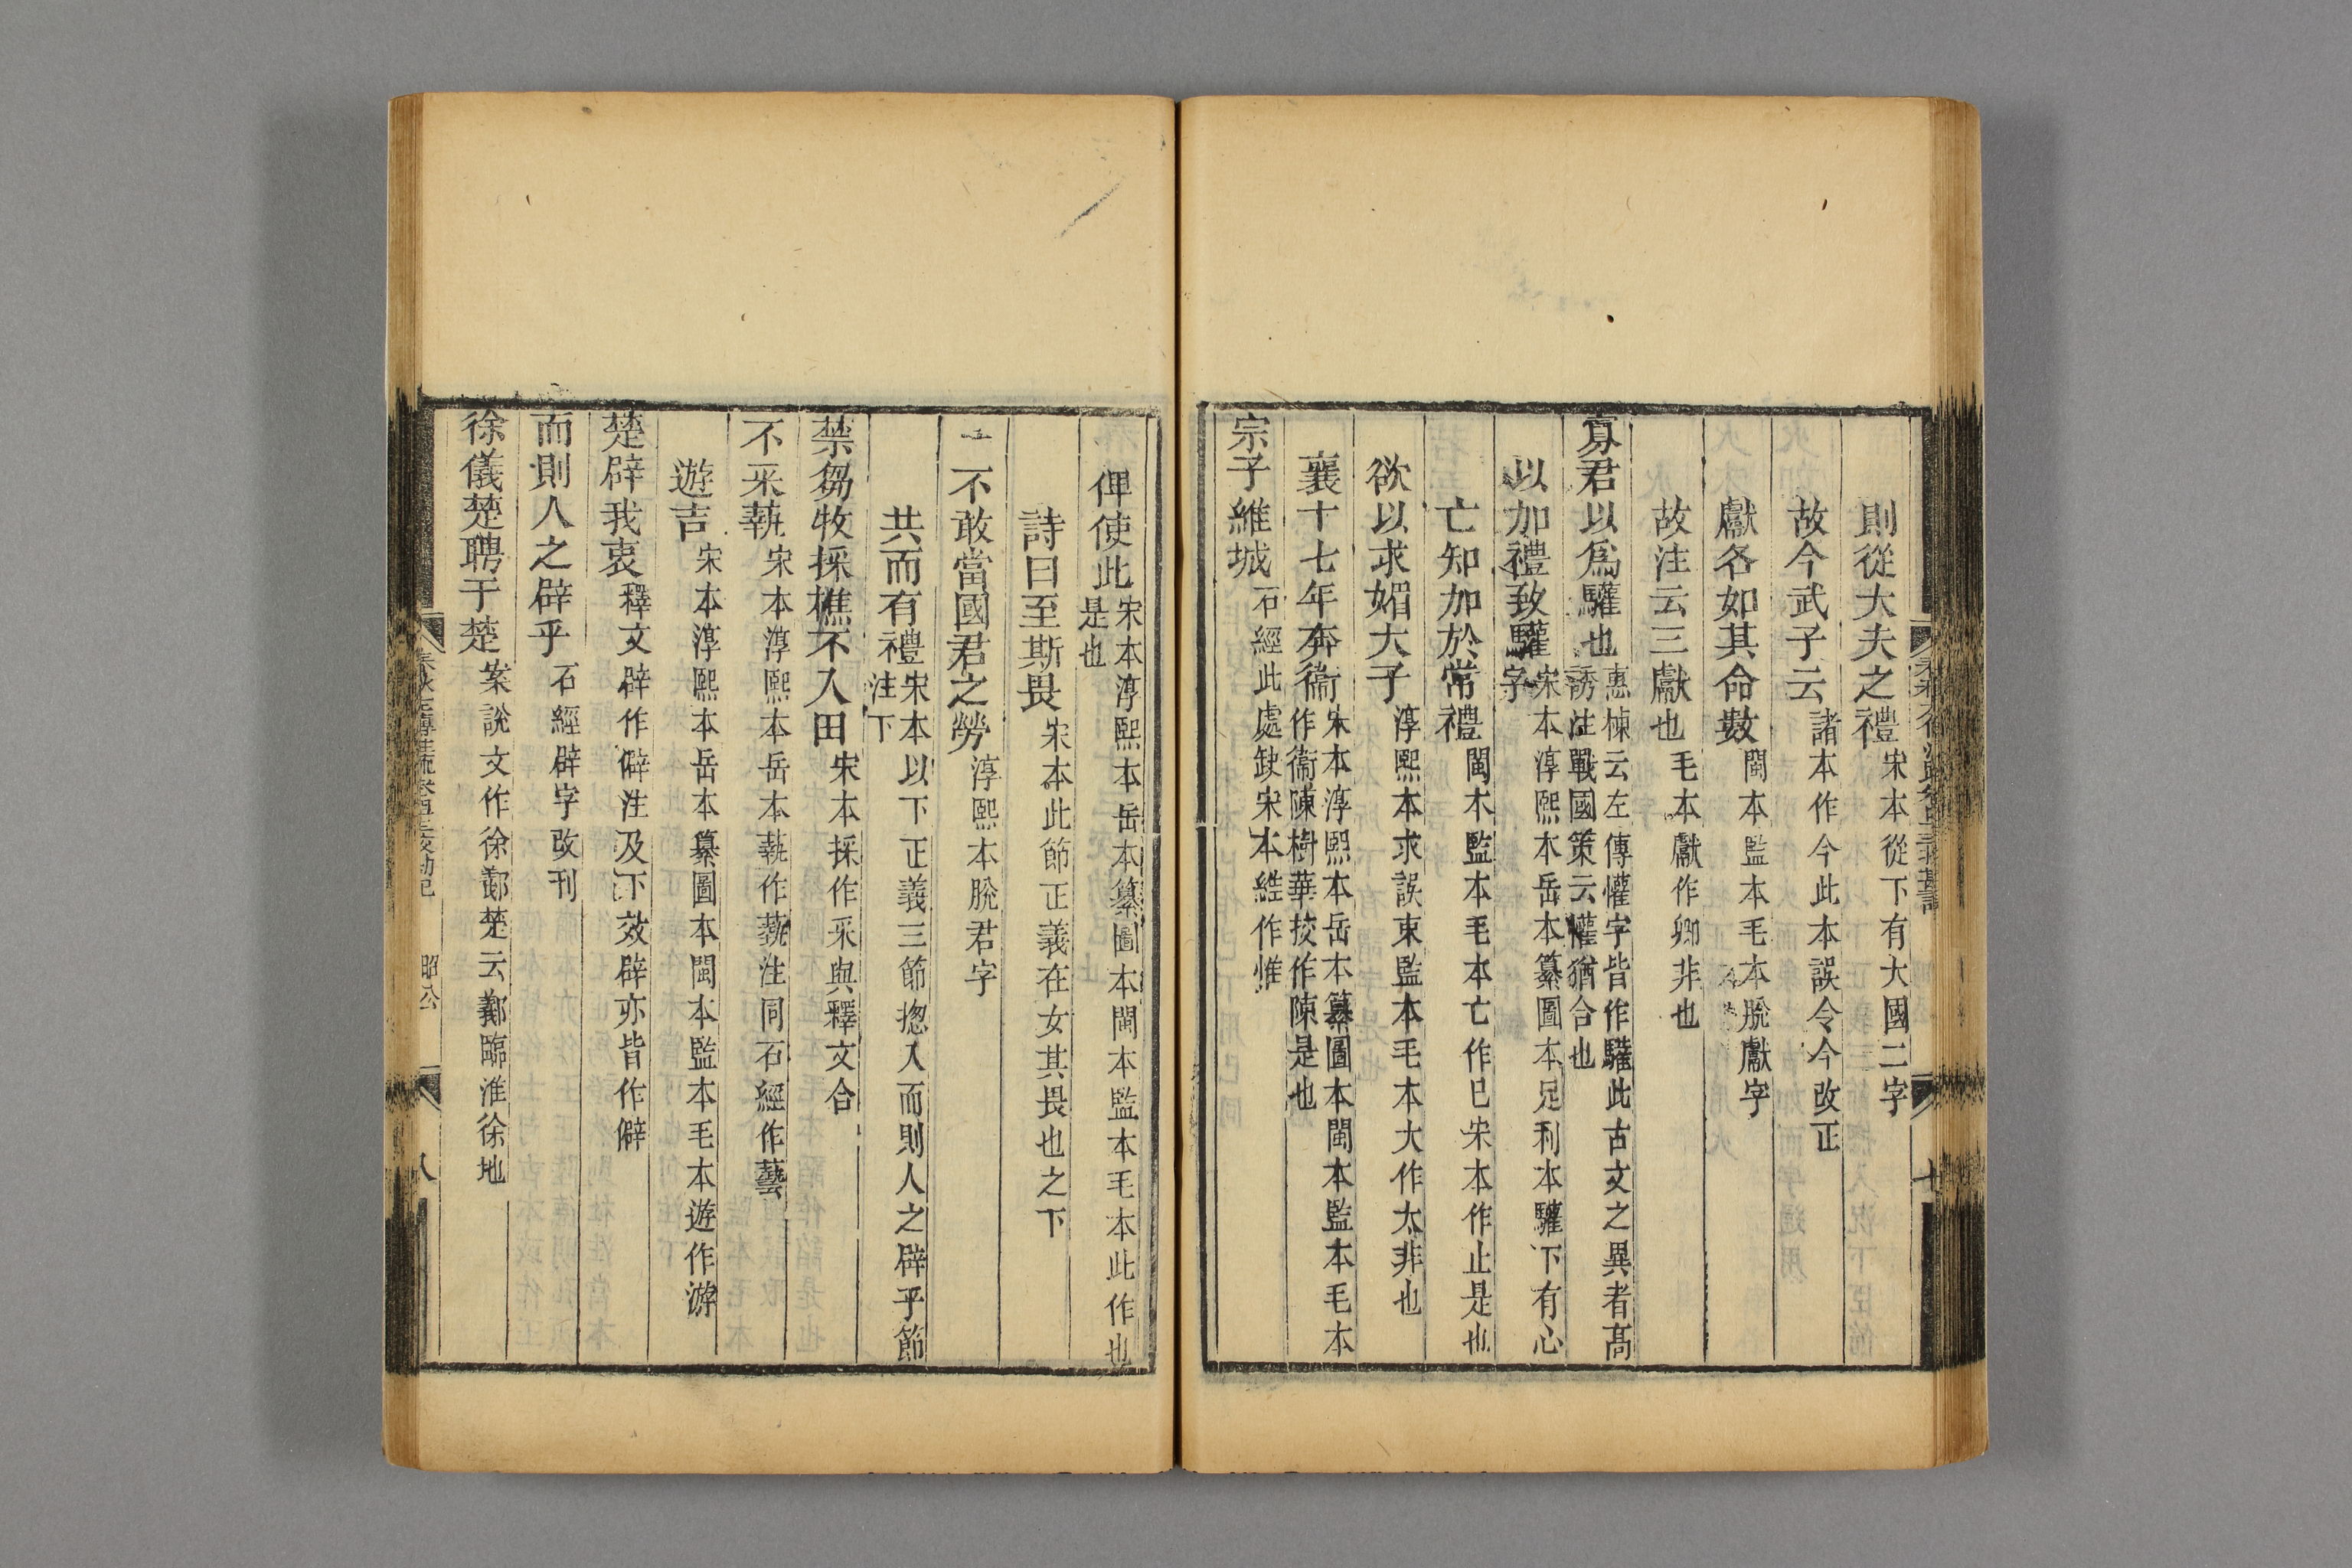 則從大夫之禮宋本從下有大國二字
故今武子云諸本作今此本誤令今改正
獻各如其命數閩本監本毛本脫獻字
故注云三獻也毛本獻作卿非也
寡君以爲驩也惠棟云左傳懽字皆作驩此古文之異者高誘注戰國策云懽猶合也
以加禮致驩宋本淳熙本岳本纂圖本足利本驩下有心字
亡知加於常禮閩本監本毛本亡作巳宋本作止是也
欲以求媚大子淳熙本求誤東監本毛本大作太非也
襄十七年奔衞宋本淳熙本岳本纂圖本閩本監本毛本作衞陳樹華挍作陳是也
宗子維城石經此處缺宋本維作惟
俾使此宋本淳熙本岳本纂圖本閩本監本毛本此作也是也
詩曰至斯畏宋本此節正義在女其畏也之下
不敢當國君之勞淳熙本脫君字
共而有禮宋本以下正義三節揔入而則人之辟乎節注下
禁芻牧採樵不入田宋本採作采與釋文合
不采蓺宋本淳熙本岳本蓺作藝注同石經作藝
遊吉宋本淳熙本岳本纂圖本閩本監本毛本遊作游
楚辟我衷釋文辟作僻注及下效辟亦皆作僻
而則人之辟乎石經辟字改刊
徐儀楚聘于楚案說文作徐鄯楚云鄯臨淮徐地
昭公
八